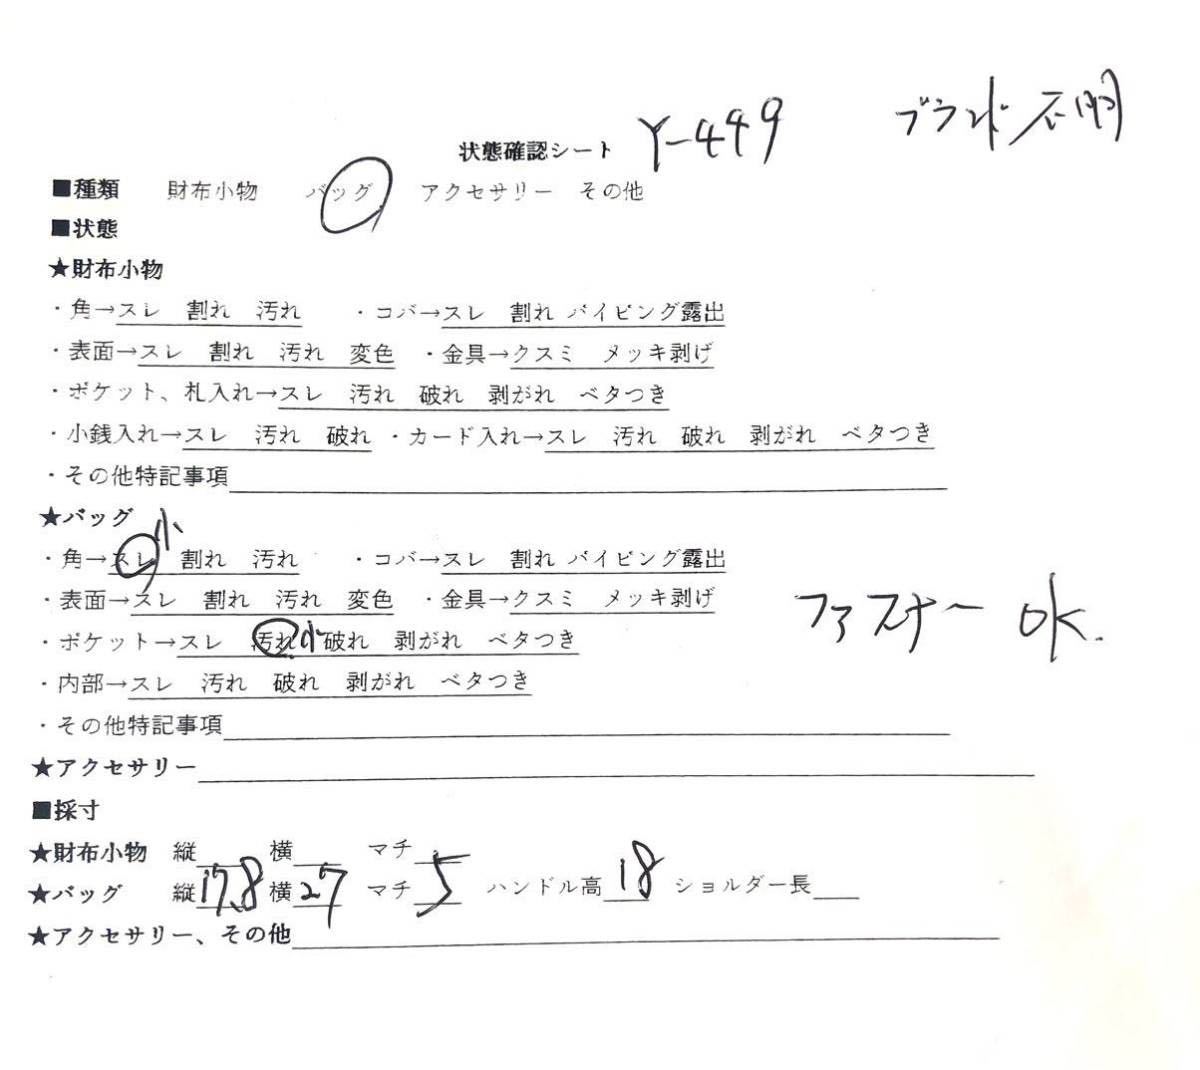 状態確認シート Y-449 ブランド不明
■種類 財布小物 バッグ アクセサリー その他
■状態
★財布小物
・角→スレ 割れ 汚れ ・コバ→スレ 割れ パイピング露出
・表面→スレ 割れ 汚れ 変色 ・金具→クスミ メッキ剥げ
・ポケット、札入れ→スレ 汚れ 破れ 剥がれ ベタつき
・小銭入れ→スレ 汚れ 破れ ・カード入れ→スレ 汚れ 破れ 剥がれ ベタつき
・その他特記事項
★バッグ
・角→スレ小 割れ 汚れ ・コバ→スレ 割れ パイピング露出
・表面→スレ 割れ 汚れ 変色 ・金具→クスミ メッキ剥げ ファスナー OK.
・ポケット→スレ 汚れ小 破れ 剥がれ ベタつき
・内部→スレ 汚れ 破れ 剥がれ ベタつき
・その他特記事項
★アクセサリー
■採寸
★財布小物 縦 横 マチ
★バッグ 縦17.8 横27 マチ5 ハンドル高18 ショルダー長
★アクセサリー、その他